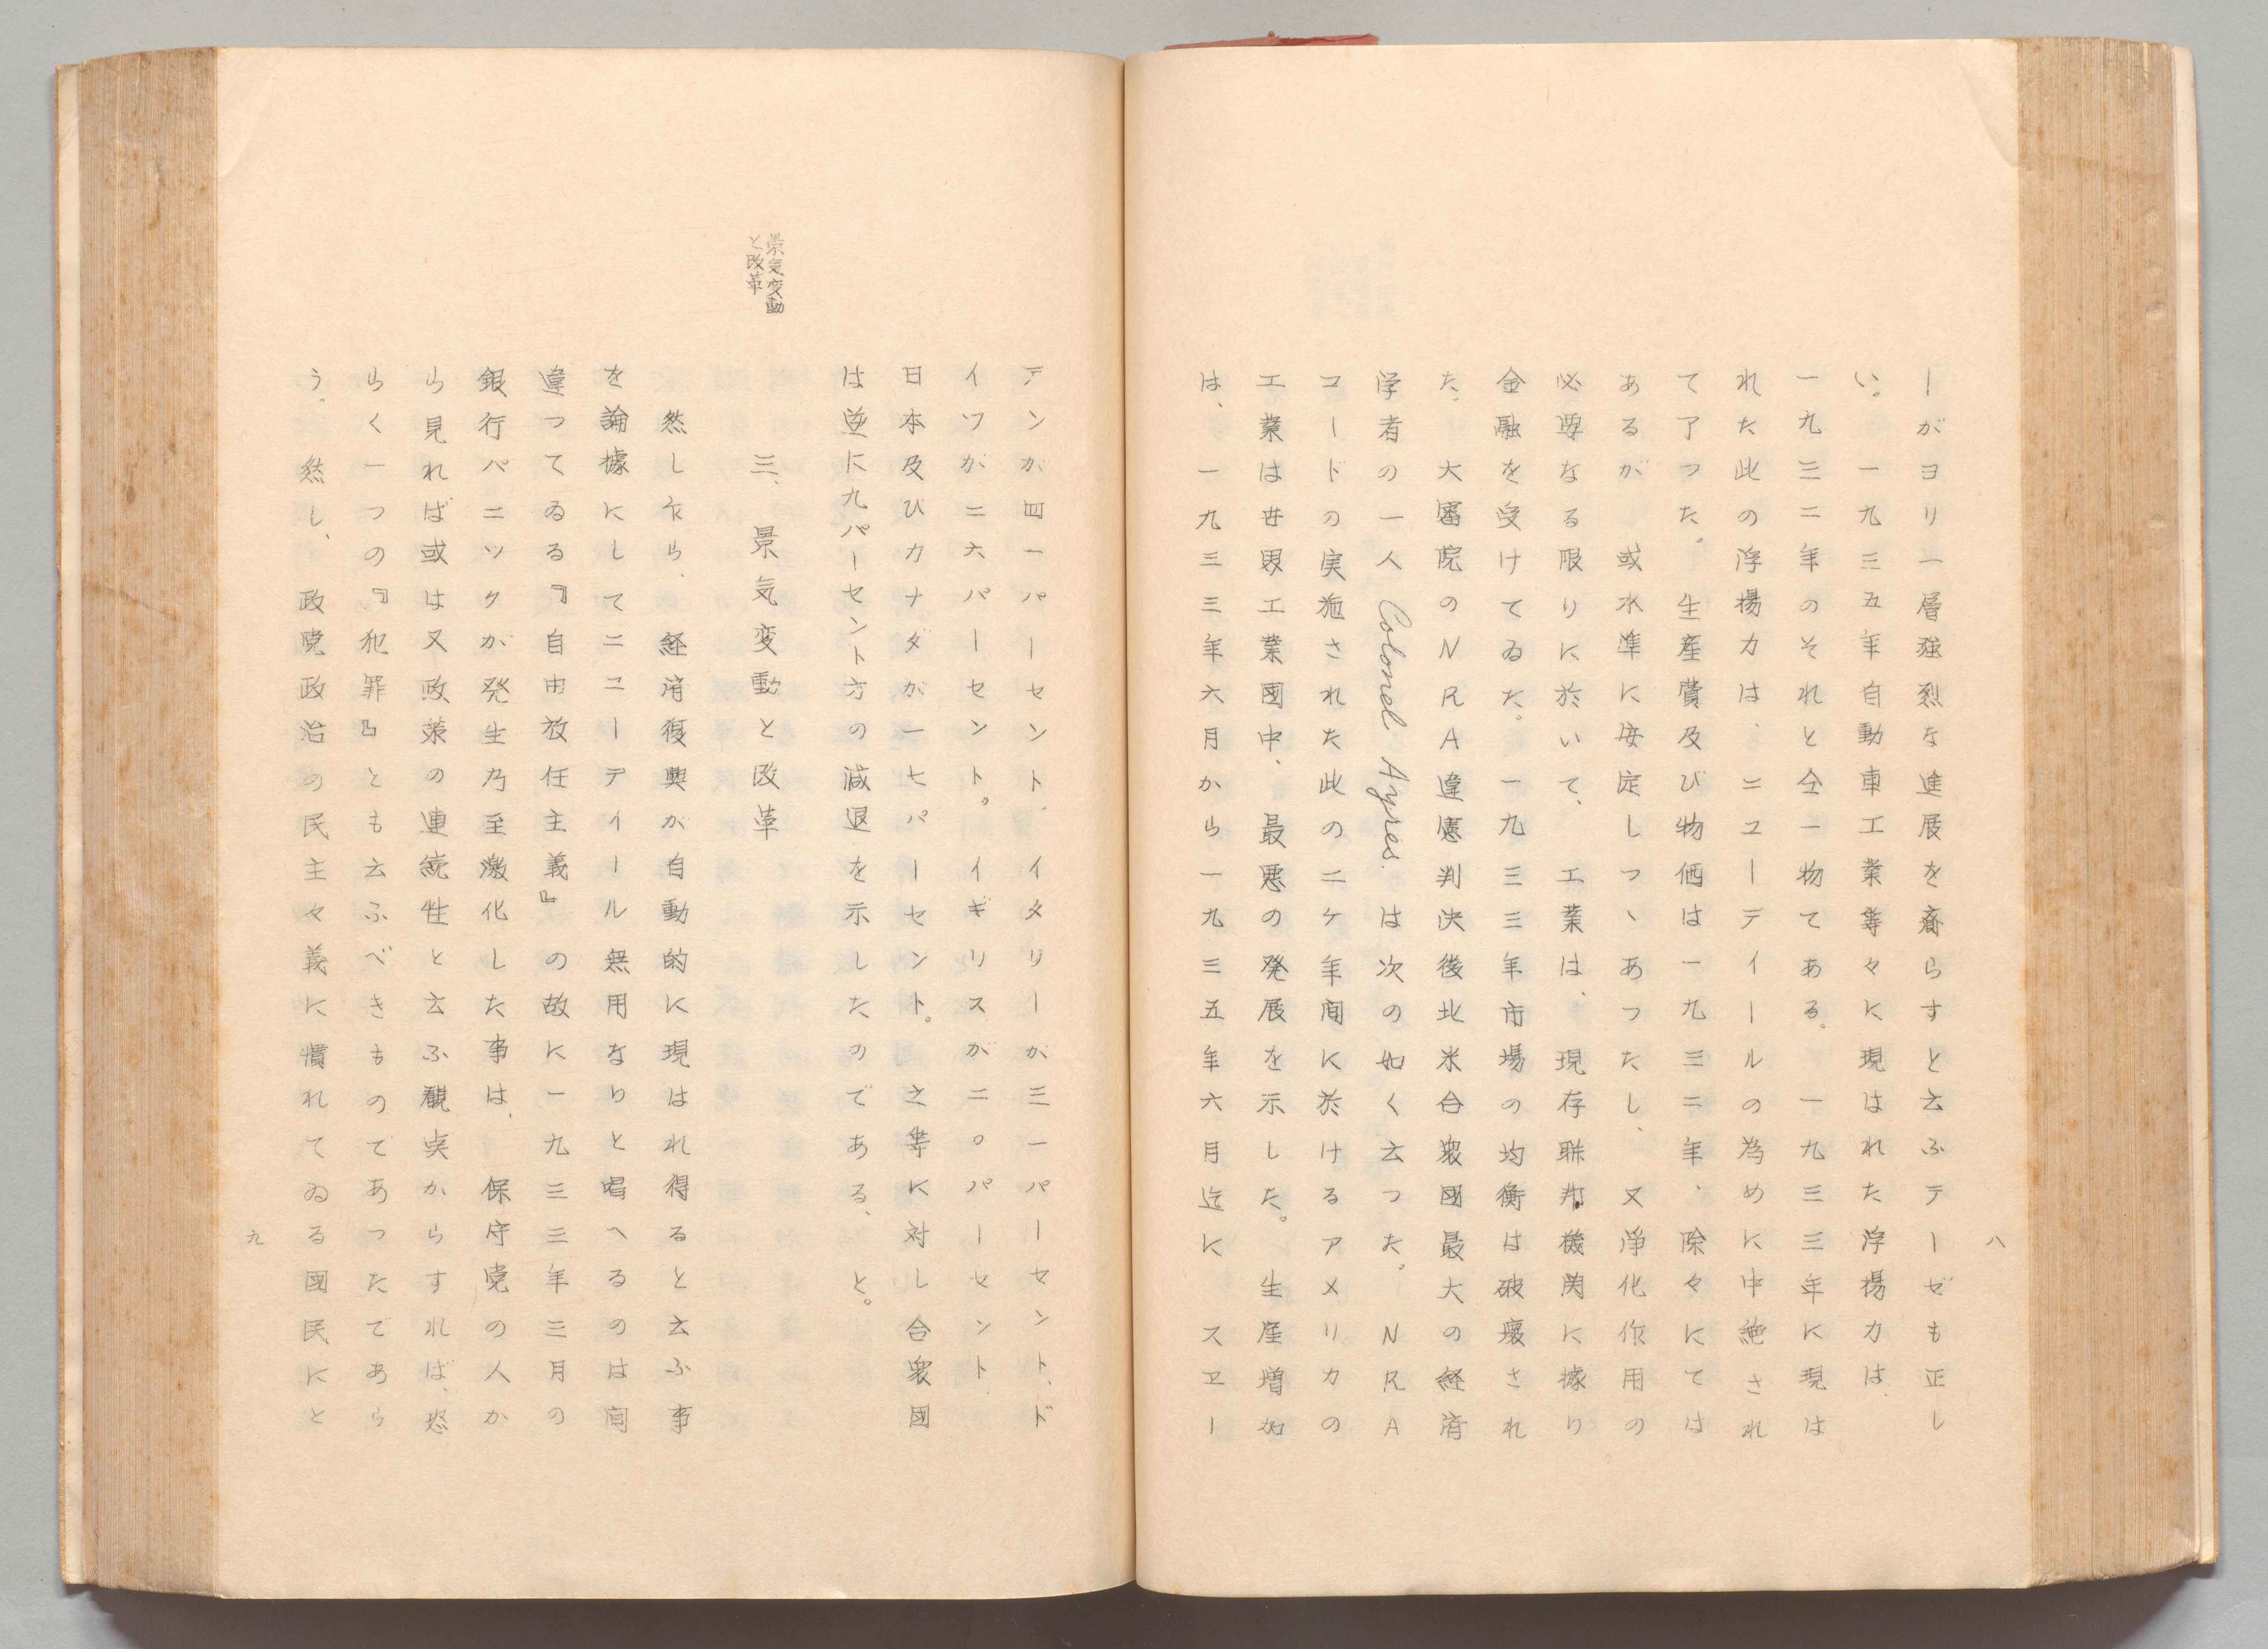 八
ーがヨリ一層強烈な進展を齎らすと云ふテーゼも正し
い。一九三五年自動車工業等々に現はれた浮揚力は、
一九三二年のそれと仝一物てある。一九三三年に現は
れた此の浮揚力は、ニユーデイールの為めに中絶され
てアつた。生産費及び物価は一九三二年、除々にては
あるが 或水準に安定しつヽあつたし、又浄化作用の
必要なる限りに於いて、工業は、現存聯邦機関に據り
金融を受けてゐた。一九三三年市場の均衡は破壊され
た。大審院のNRA違憲判決後北米合衆國最大の経済
学者の一人 Colonel Ayres. は次の如く云つた。NRA
コードの実施された此の二ケ年間に於けるアメリカの
工業は世界工業國中、最悪の発展を示した。生産増加
は、一九三三年六月から一九三五年六月迄に スヱー
デンが四一パーセント、イタリーが三一パーセント、ド
イツが二六パーセント。イギリスが二〇パーセント、
日本及びカナダが一七パーセント。之等に対し合衆國
は逆に九パーセント方の減退を示したのである、と。
景気変動
と改革
三、景気変動と改革
然し乍ら、経済復興が自動的に現はれ得ると云ふ事
を論據にしてニユーデイール無用なりと唱へるのは間
違つてゐる『自由放任主義』の故に一九三三年三月の
銀行パニツクが発生乃至激化した事は、保守党の人か
ら見れば或は又政策の連続性と云ふ観点からすれば、恐
らく一つの『犯罪』とも云ふべきものてあつたであら
う。然し、政党政治の民主々義に慣れてゐる國民にと
九